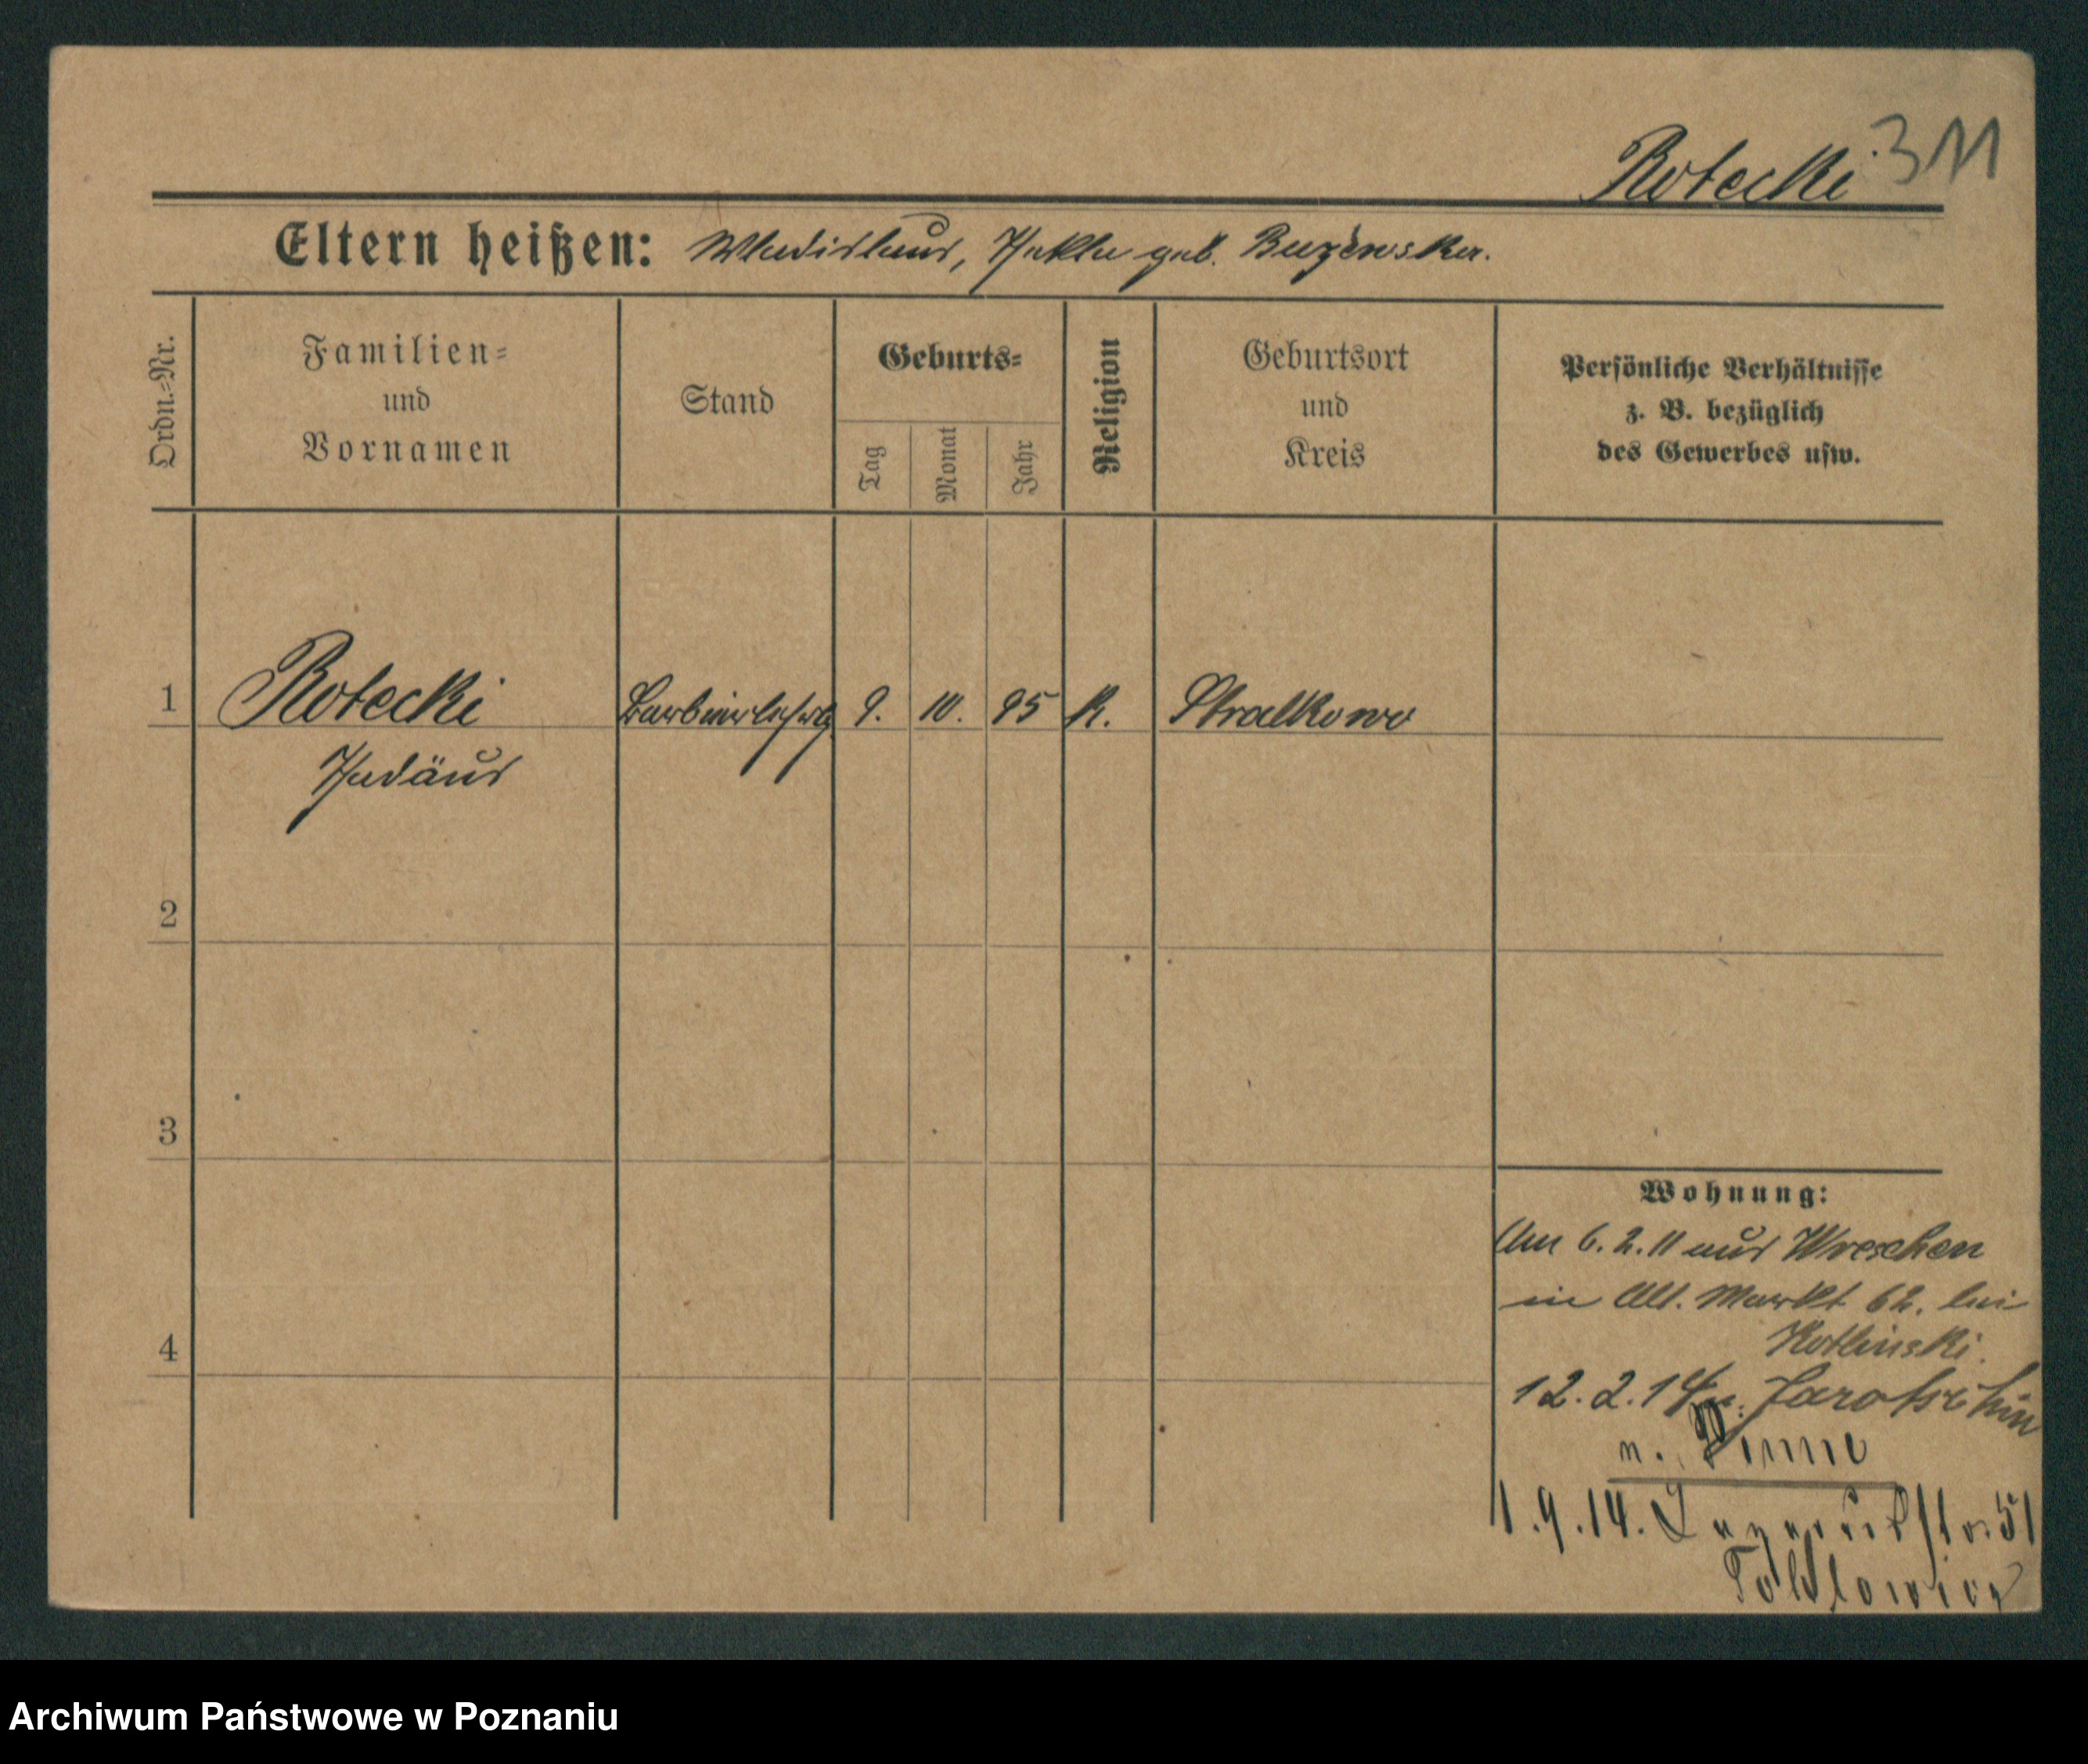 Rotecki 311
Eltern heißen: Wladislaus, Thekla geb. Buzewska.
Ordn.-Nr.
Familien-
und
Vornamen
Stand
Geburts-
Tag
Monat
Jahr
Religion
Geburtsort
und
Kreis
Persönliche Verhältnisse
z. B. bezüglich
des Gewerbes usw.
1 Rotecki Barbierlehrlg 9. 10. 95 K. Stralkowo
Thadäus
2
3
4
Wohnung:
Am 6. 2. 11 aus Wreschen
in Alt. Markt 62. bei
Kotlinski.
12. 2. 14 n. Jarotschin
n. Pinne
1. 9. 14. 51
Archiwum Państwowe w Poznaniu